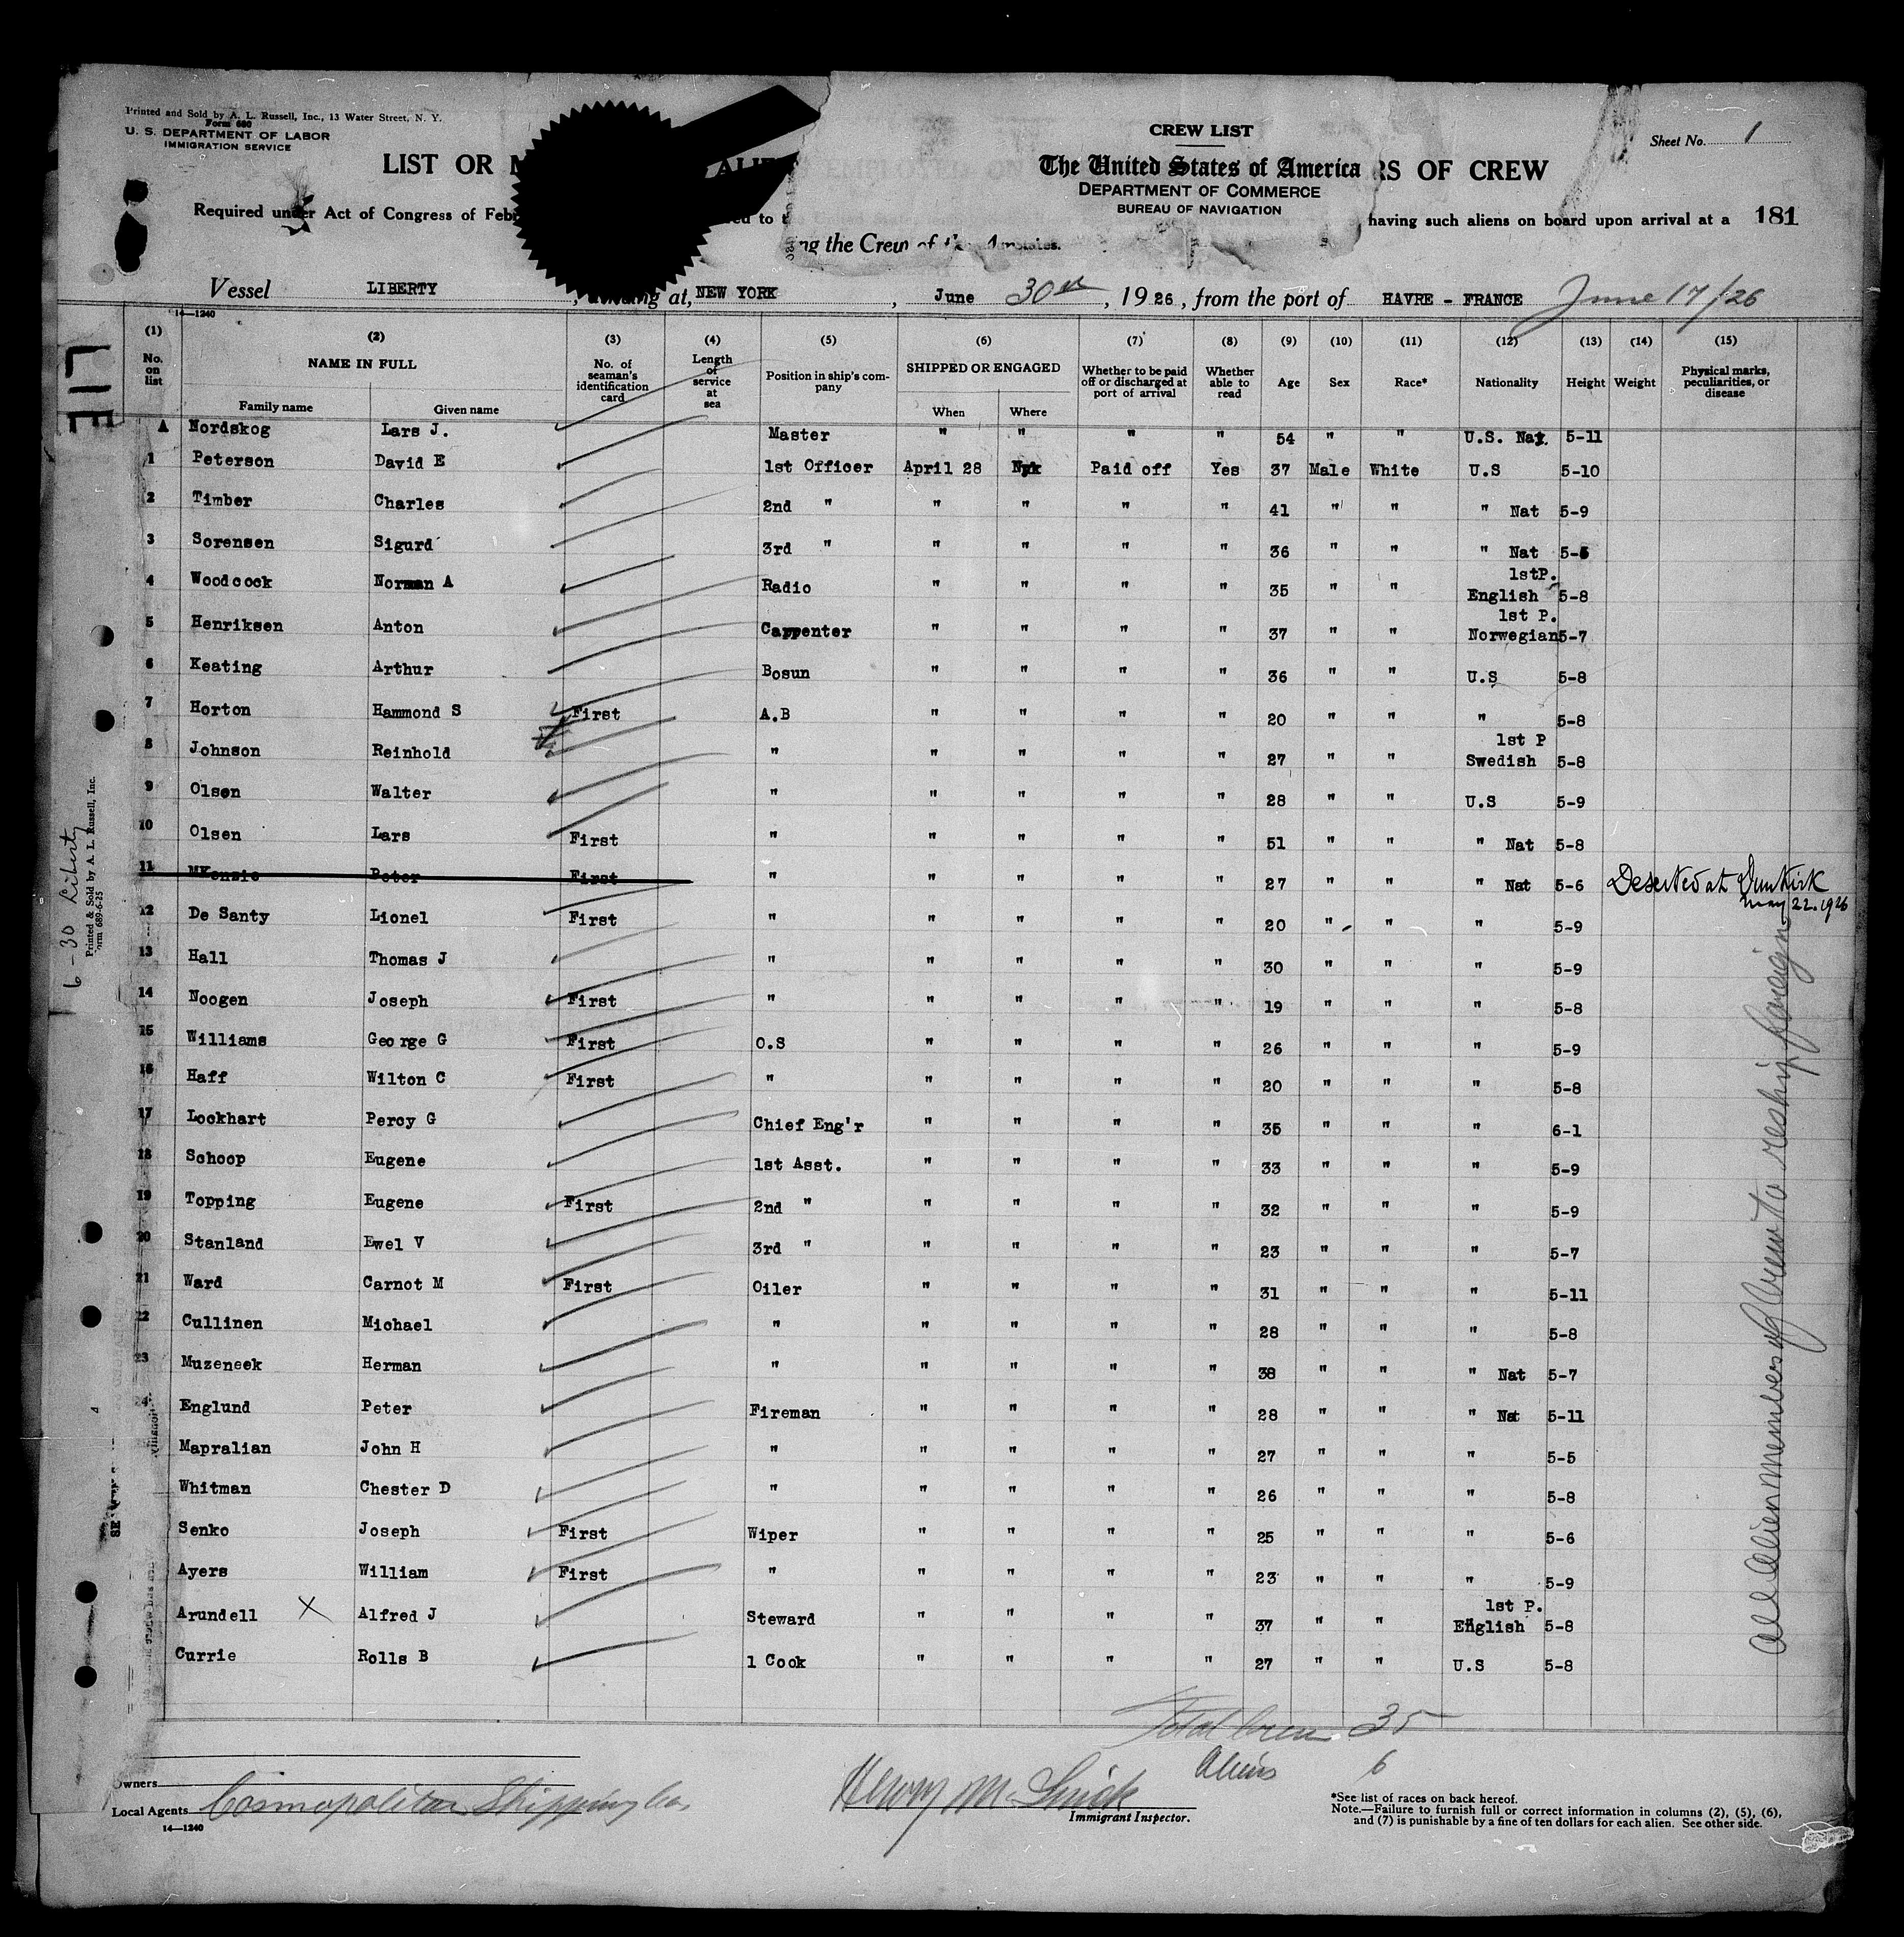 Printed and Sold by A. L. Russell, Inc., 13 Water Street, N. Y.
Form 680
U. S. DEPARTMENT OF LABOR
IMMIGRATION SERVICE
CREW LIST
Sheet No. 1
LIST OR
The United States of America
RS OF CREW
DEPARTMENT OF COMMERCE
BUREAU OF NAVIGATION
Required under Act of Congress of
having such aliens on board upon arrival at a 181
the Crew of
Vessel LIBERTY, at, NEW YORK, June 30th, 1926, from the port of HAVRE - FRANCE June 17/26
14-1240
(1) (2) (3) (4) (5) (6) (7) (8) (9) (10) (11) (12) (13) (14) (15)
No. on list NAME IN FULL Family name Given name No. of seaman's identification card Length of service at sea Position in ship's company SHIPPED OR ENGAGED When Where Whether to be paid off or discharged at port of arrival Whether able to read Age Sex Race* Nationality Height Weight Physical marks, peculiarities, or disease
A Nordskog Lars J. Master " " " " 54 " " U.S. Nat. 5-11
1 Peterson David E 1st Officer April 28 Nyk Paid off Yes 37 Male White U.S 5-10
2 Timber Charles 2nd " " " " " 41 " " " Nat 5-9
3 Sorensen Sigurd 3rd " " " " " 36 " " " Nat 5-5
4 Woodcock Norman A Radio " " " " 35 " " 1stP. English 5-8
5 Henriksen Anton Carpenter " " " " 37 " " 1st P. Norwegian 5-7
6 Keating Arthur Bosun " " " " 36 " " U.S 5-8
7 Horton Hammond S First A.B " " " " 20 " " " 5-8
8 Johnson Reinhold " " " " " 27 " " 1st P Swedish 5-8
9 Olsen Walter " " " " " 28 " " U.S 5-9
10 Olsen Lars First " " " " " 51 " " " Nat 5-8
11 MKenzie Peter First " " " " " 27 " " " Nat 5-6 Deserted at Dunkirk May 22. 1926
12 De Santy Lionel First " " " " " 20 " " " 5-9
13 Hall Thomas J " " " " " 30 " " " 5-9
14 Noogen Joseph First " " " " " 19 " " " 5-8
15 Williams George G First O.S " " " " 26 " " " 5-9
16 Haff Wilton C First " " " " " 20 " " " 5-8
17 Lockhart Percy G Chief Eng'r " " " " 35 " " " 6-1
18 Schoop Eugene 1st Asst. " " " " 33 " " " 5-9
19 Topping Eugene First 2nd " " " " " 32 " " " 5-9
20 Stanland Ewel V 3rd " " " " " 23 " " " 5-7
21 Ward Carnot M First Oiler " " " " 31 " " " 5-11
22 Cullinen Michael " " " " " 28 " " " 5-8
23 Muzeneek Herman " " " " " 38 " " " Nat 5-7
24 Englund Peter Fireman " " " " 28 " " " Nat 5-11
Mapralian John H " " " " " 27 " " " 5-5
Whitman Chester D " " " " " 26 " " " 5-8
Senko Joseph First Wiper " " " " 25 " " " 5-6
Ayers William First " " " " " 23 " " " 5-9
Arundell X Alfred J Steward " " " " 37 " " 1st P. English 5-8
Currie Rolls B 1 Cook " " " " 27 " " U.S 5-8
All Alien members of Crew to reship foreign
6-30 Liberty
Printed & Sold by A. L. Russell, Inc.
Form 689-6-25
Total Crew 35
Aliens 6
Owners
Local Agents Cosmopolitan Shipping Co.
14-1240
Immigrant Inspector.
*See list of races on back hereof.
Note.—Failure to furnish full or correct information in columns (2), (5), (6),
and (7) is punishable by a fine of ten dollars for each alien. See other side.